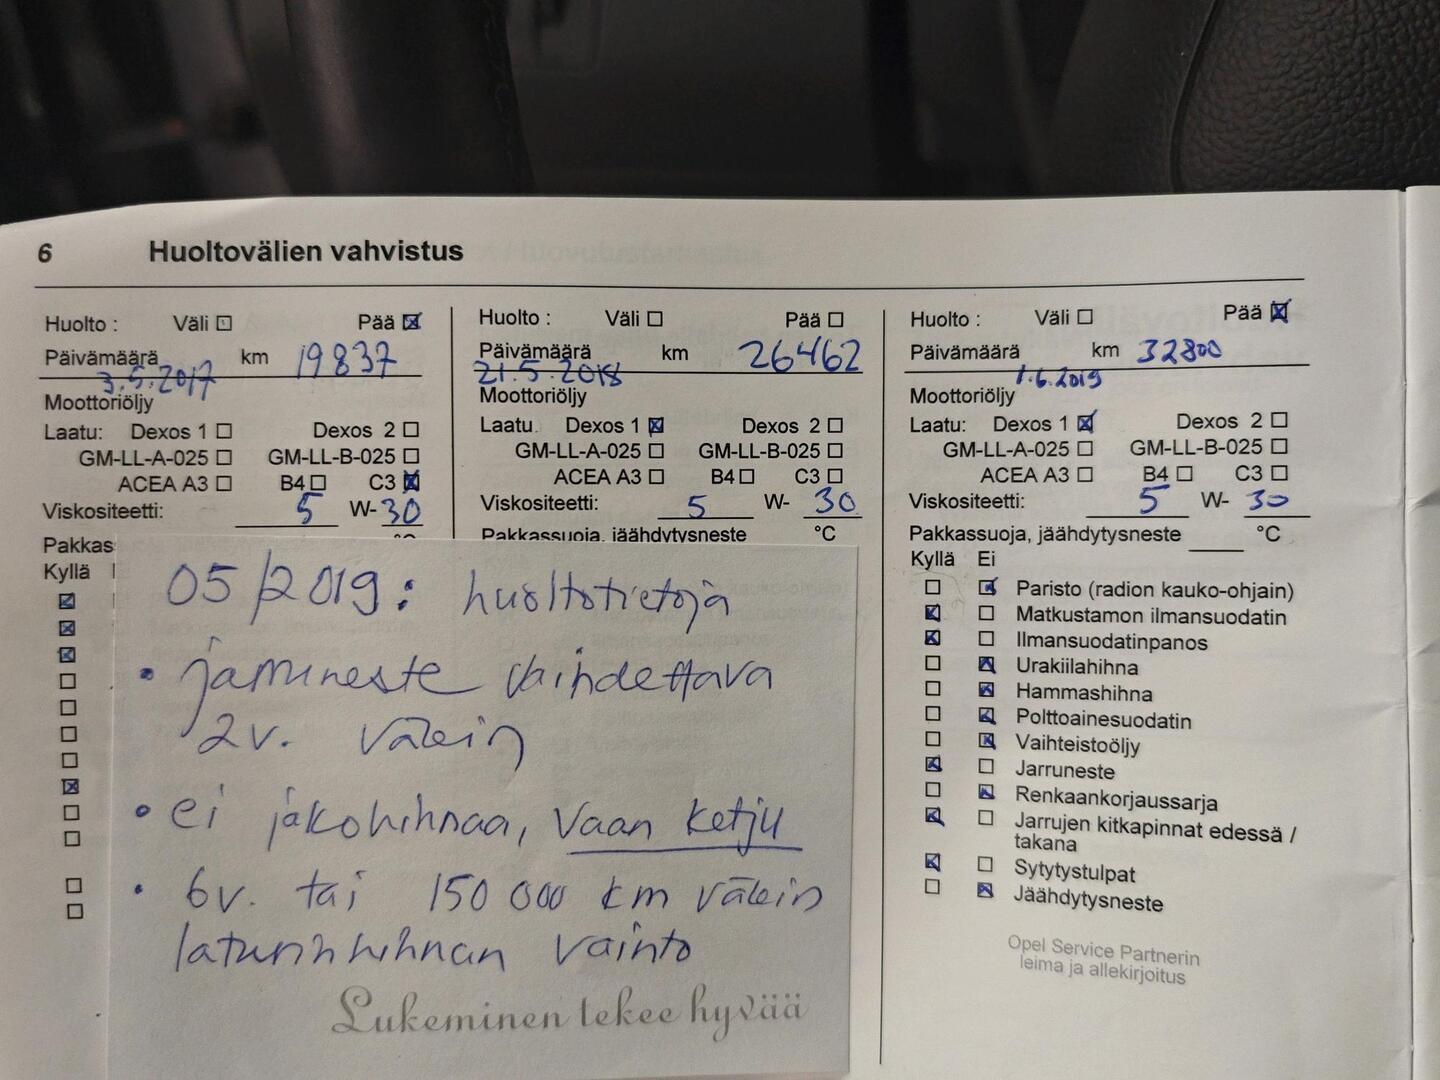 6 Huoltovälien vahvistus
Huolto : Väli Pää
Päivämäärä km 19837
3.5.2017
Moottoriöljy
Laatu: Dexos 1 Dexos 2
GM-LL-A-025 GM-LL-B-025
ACEA A3 B4 C3
Viskositeetti: 5 W-30
Pakkas
Kyllä
Huolto : Väli Pää
Päivämäärä km 26462
21.5.2018
Moottoriöljy
Laatu. Dexos 1 Dexos 2
GM-LL-A-025 GM-LL-B-025
ACEA A3 B4 C3
Viskositeetti: 5 W- 30
Pakkassuoja, jäähdytysneste °C
05/2019: huoltotietoja
• jarruneste vaihdettava
2v. välein
• ei jakohihnaa, vaan ketju
• 6v. tai 150 000 km välein
laturinhihnan vaihto
Lukeminen tekee hyvää
Huolto : Väli Pää
Päivämäärä km 32800
1.6.2019
Moottoriöljy
Laatu: Dexos 1 Dexos 2
GM-LL-A-025 GM-LL-B-025
ACEA A3 B4 C3
Viskositeetti: 5 W- 30
Pakkassuoja, jäähdytysneste °C
Kyllä Ei
Paristo (radion kauko-ohjain)
Matkustamon ilmansuodatin
Ilmansuodatinpanos
Urakiilahihna
Hammashihna
Polttoainesuodatin
Vaihteistoöljy
Jarruneste
Renkaankorjaussarja
Jarrujen kitkapinnat edessä /
takana
Sytytystulpat
Jäähdytysneste
Opel Service Partnerin
leima ja allekirjoitus